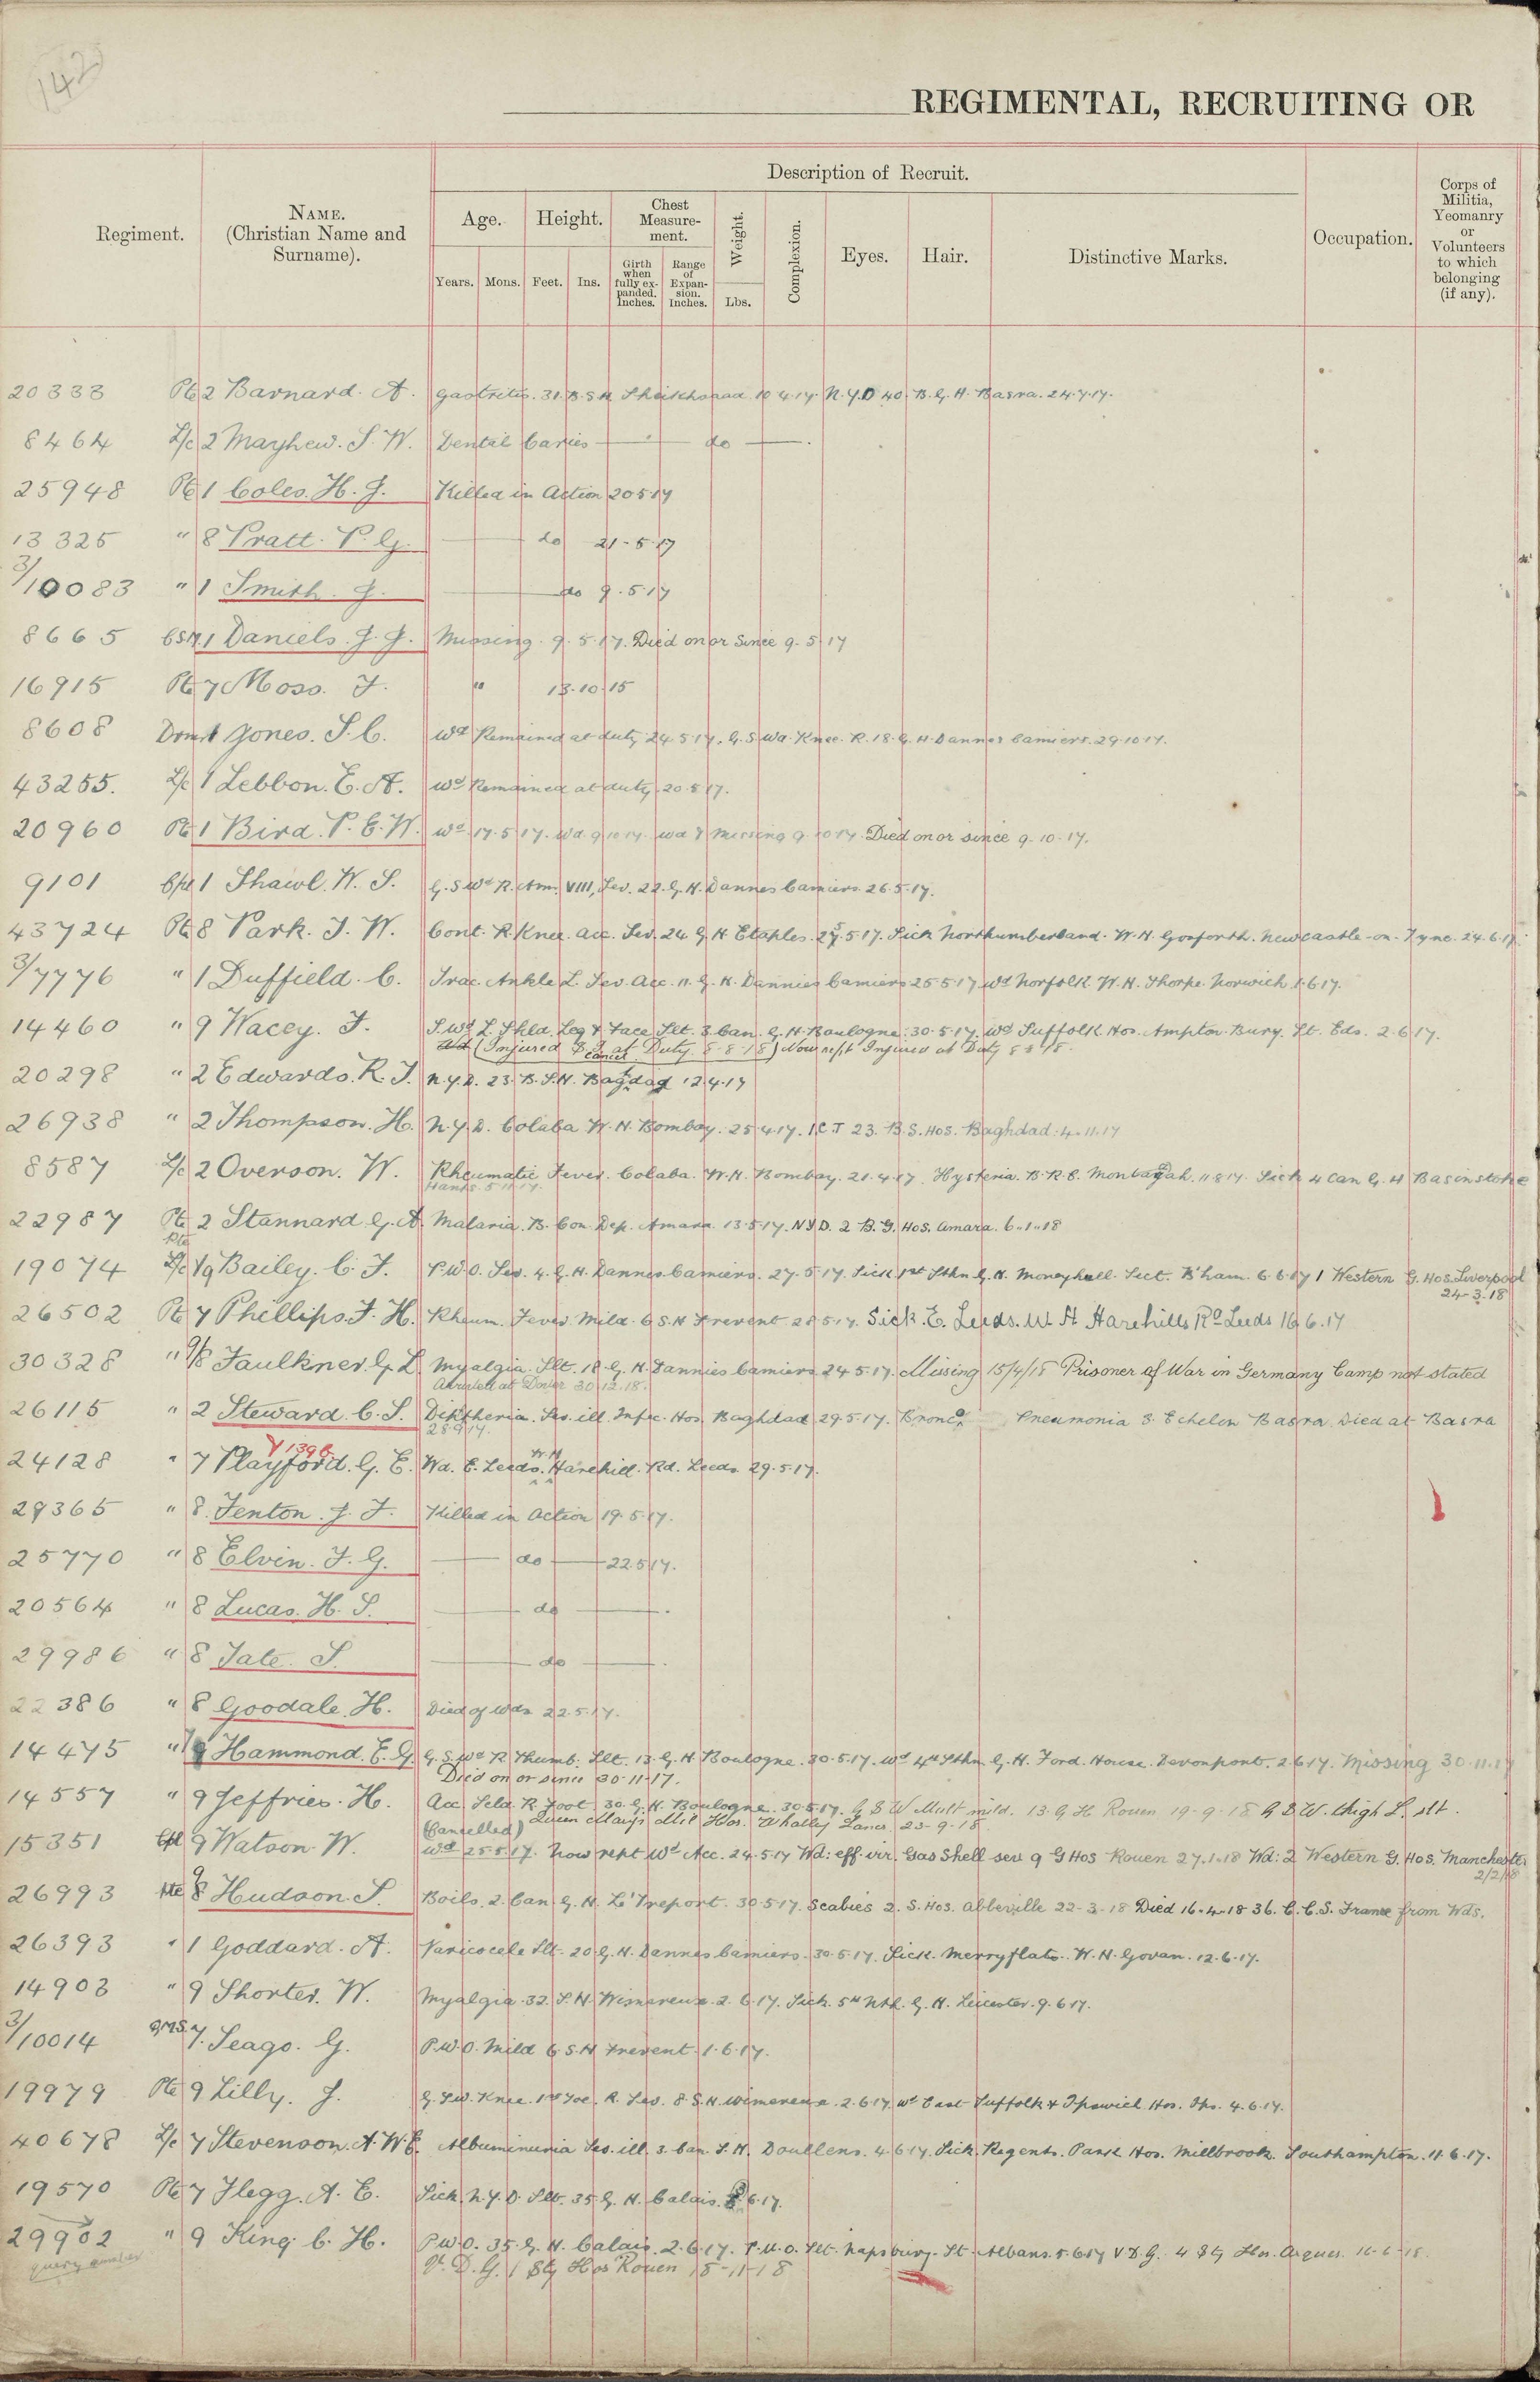 142
REGIMENTAL, RECRUITING OR
Description of Recruit.
Regiment.
NAME.
(Christian Name and
Surname).
Age.
Height.
Chest
Measure-
ment.
Weight.
Complexion.
Eyes.
Hair.
Distinctive Marks.
Occupation.
Corps of
Militia,
Yeomanry
or
Volunteers
to which
belonging
(if any).
Years.
Mons.
Feet.
Ins.
Girth
when
fully ex-
panded.
Inches.
Range
of
Expan-
sion.
Inches.
Lbs.
20333 Pte 2 Barnard. A. Gastritis. 31. B.S.H. Sheikhsaad. 10.4.17. N.Y.D 40. B.G.H. Basra. 24.4.17.
8464 L/c 2 Mayhew. S. W. Dental Caries — " — do —.
25948 Pte 1 Coles. H. J. Killed in Action 20 5 17
13325 " 8 Pratt. P. G. — do 21-5-17
3/10083 " 1 Smith. J. — do 9.5.17
8665 CSM. 1 Daniels. J. J. Missing. 9.5.17. Died on or Since 9-5-17
16915 Pte 7 Moss. F. " 13.10.15
8608 Drm 1 Jones. S. C. Wd Remained at duty 24.5.17. G.S.Wd. Knee. R. 18. G.H. Dannes Camiers. 29.10.17.
43255. L/c 1 Lebbon. E. A. Wd Remained at duty 20.5.17.
20960 Pte 1 Bird. P. E. W. Wd 17.5.17. Wd 9.10.17. Wd & Missing 9.10.17. Died on or since 9.10.17.
9101 Cpl 1 Shawl. W. S. G.S Wd R. Arm. VIII, Sev. 22. G.H. Dannes Camiers. 26.5.17.
43724 Pte 8 Park. J. W. Cont. R. Knee. acc. Sev. 24 G H Etaples. 25.5.17. Sick Northumberland. W.H. Gosforth. Newcastle-on-Tyne. 24.6.17.
3/7776 " 1 Duffield. C. Frac. Ankle L. Sev. Acc. 11. G.H. Dannies Camiers 25 5 17 Wd Norfolk W.H. Thorpe. Norwich 1.6.17.
14460 " 9 Wacey. F. S.Wd L. Shld. Leg & Face Slt. 3 Can. G.H. Boulogne. 30.5.17. Wd Suffolk Hos. Ampton. Bury. St. Eds. 2.6.17.
(Injured at Duty 8-8-18) Now rept Injured at Duty 8 8 18.
cancel
20298 " 2 Edwards. R. J. N.Y.D. 23. B.S.H. Bagdag 12.4.17
26938 " 2 Thompson. H. N.Y.D. Colaba W.H. Bombay. 25.4.17. I.C.T 23. B.S. Hos. Baghdad. 4.11.17
8587 L/c 2 Overson. W. Rheumatic Fever. Colaba. W.H. Bombay. 21.4.17. Hysteria. B.R.C. 11.8.17. Sick 4 Can G.H Basinstoke
Hants. 5.11.17.
22987 Pte 2 Stannard. G. A. Malaria. B. Con. Dep. Amara. 13.5.17. NYD. 2 B.G. Hos. Amara. 6-1-18
Pte
19074 L/c 1/9 Bailey. C. F. P.U.O. Sev. 4. G.H. Dannes Camiers. 27.5.17. Sick 1st Sthn G.H. Moneyhull. Sect. B'ham. 6.6.17 1 Western G. Hos. Liverpool
24-3-18
26502 Pte 7 Phillips. F. H. Rheum. Fever Mild. 6 S.H Frevent 28.5.17. Sick. E. Leeds. W H Harehills Rd Leeds 16.6.17
30328 " 9/8 Faulkner. G. L. Myalgia. Slt. 18 G.H. Dannies Camiers. 24.5.17. Missing 15/4/18 Prisoner of War in Germany Camp not stated
Arrived at Dover 30.12.18.
26115 " 2 Steward. C. S. Diphtheria. Sev. ill. Infec. Hos. Baghdad 29.5.17. Bronco Pneumonia 3. Echelon Basra. Died at Basra
28.9.17.
Y1396
24128 " 7 Playford. G. E. Wd. E. Leeds. W.H. Harehill. Rd. Leeds. 29.5.17.
29365 " 8. Fenton. J. F. Killed in Action 19.5.17.
25770 " 8 Elvin. F. G. — do — 22.5.17.
20564 " 8 Lucas. H. S. — do —.
29986 " 8 Tate. S. — do —.
22386 " 8 Goodale. H. Died of Wds 22.5.17.
14475 " 1/9 Hammond. E. G. G.S.Wd R Thumb. Slt. 13. G.H. Boulogne. 30.5.17. Wd 4th Sthn G.H. Ford. House. Devonport. 2.6.17. Missing 30.11.17
Died on or since 30-11-17.
14557 " 9 Jeffries. H. Acc. Seld. R. Foot 30. G.H. Boulogne. 30.5.17. G S W Mult mild. 13. G H Rouen 19-9-18 G S W. thigh L. slt.
Queen Mary's Mil Hos. Whalley Lancs. 23-9-18
(Cancelled)
15351 Cpl 9 Watson. W. Wd 25.5.17. Now rept Wd Acc. 24.5.17 Wd: eff. vir. Gas Shell sev 9 G Hos Rouen 27.1.18 Wd: 2 Western G. Hos. Manchester
2/2/18
26993 Pte 9/8 Hudson. S. Boils. 2. Can G.H. Le Treport. 30.5.17. Scabies 2. S. Hos. Abbeville 22-3-18 Died 16-4-18 36. C.C.S. France from Wds.
26393 " 1 Goddard. A. Varicocele Slt. 20 G.H. Dannes Camiers. 30.5.17. Sick. Merryflats. W.H. Govan. 12.6.17.
14903 " 9 Shorter. W. Myalgia. 32. S.H. Wismereux. 2.6.17. Sick. 5th Nth. G.H. Leicester. 9.6.17.
3/10014 QMS. 7. Seago. G. P.U.O. Mild 6 S.H Frevent. 1.6.17.
19979 Pte 9 Lilly. J. G.S.W. Knee. 1st Toe. R. Sev. 8. S.H. Wimereux. 2.6.17. Wd East Suffolk & Ipswich Hos. Ips. 4.6.17.
40678 L/c 7 Stevenson. A. W. E. Albuminuria Sev. ill. 3. Can. S.H. Doullens. 4.6.17. Sick. Regents. Park Hos. Millbrook. Southampton. 11.6.17.
19570 Pte 7 Flegg. A. E. Sick. N.Y.D. Slt. 35 G.H. Calais. 6.17.
29902 " 9 King. C. H. P.U.O. 35. G.H. Calais. 2.6.17. P.U.O. Slt. Napsbury. St. Albans. 5.6.17 V.D.G. 4 Sty Hos. Arques. 16-6-18.
query number
V.D.G. 1 Sty Hos Rouen 15-11-18